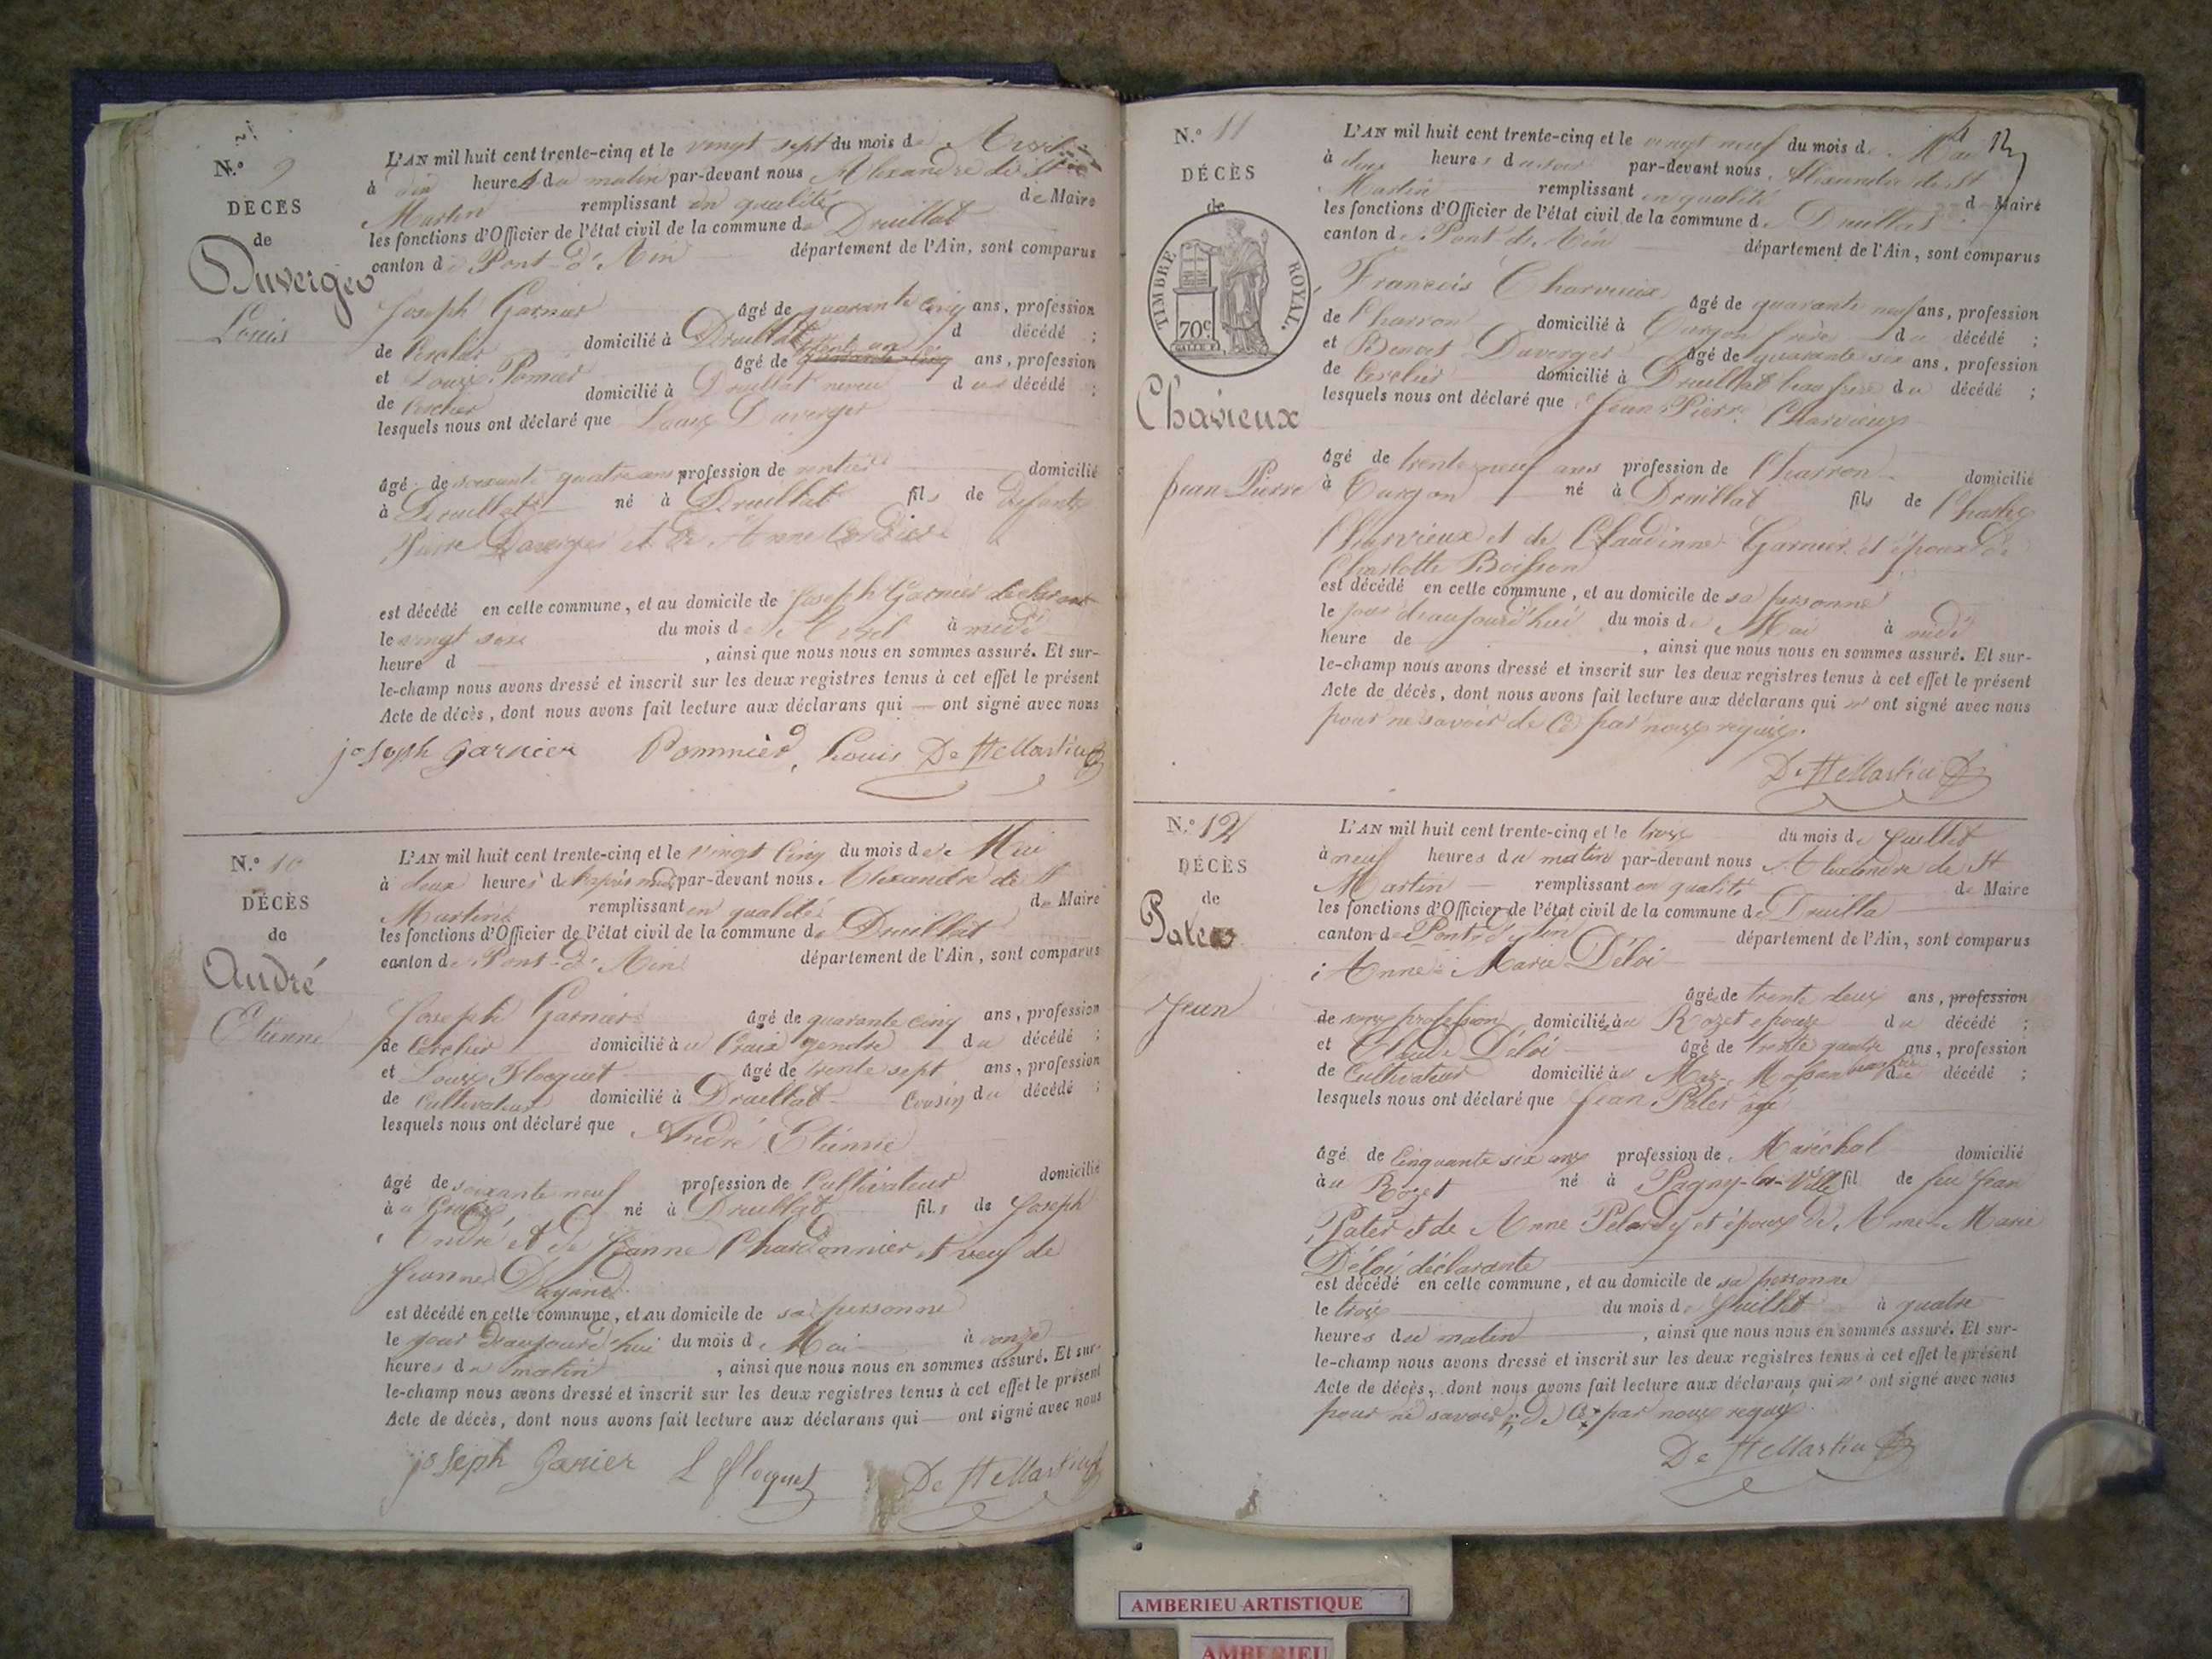 N.º 9
DÉCÈS
de
Duverger
Louis
L'AN mil huit cent trente-cinq et le vingt sept du mois de Avril
à dix heures du matin par-devant nous Alexandre de St
Martin remplissant en qualité de Maire
les fonctions d'Officier de l'état civil de la commune de Druillat
canton de Pont-d'Ain département de l'Ain, sont comparus
Joseph Garnier âgé de quarante cinq ans, profession
de Cerclier domicilié à Druillat d décédé ;
et Louis Pomier âgé de trente un quarante-cinq ans, profession
de Cerclier domicilié à Druillat neveu du décédé ;
lesquels nous ont déclaré que Louis Duverger
âgé de soixante quatre ans profession de rentier domicilié
à Druillat né à Druillat fils de défunts
Pierre Duverger et de Anne
est décédé en cette commune, et au domicile de Joseph Garnier déclarant
le vingt six du mois de Avril à midi
heure d , ainsi que nous nous en sommes assuré. Et sur-
le-champ nous avons dressé et inscrit sur les deux registres tenus à cet effet le présent
Acte de décès, dont nous avons fait lecture aux déclarans qui — ont signé avec nous
joseph garnier Pommier, Louis De St Martin
N.º 10
DÉCÈS
de
André
Etienne
L'AN mil huit cent trente-cinq et le vingt Cinq du mois de Mai
à deux heures de l'après midi par-devant nous Alexandre de St
Martin remplissant en qualité de Maire
les fonctions d'Officier de l'état civil de la commune de Druillat
canton de Pont-d'Ain département de l'Ain, sont comparus
Joseph Garnier âgé de quarante cinq ans, profession
de Cerclier domicilié à u Craix gendre du décédé ;
et Louis Floquet âgé de trente sept ans, profession
de Cultivateur domicilié à Druillat Cousin du décédé ;
lesquels nous ont déclaré que André Etienne
âgé de soixante neuf profession de Cultivateur domicilié
à u né à Druillat fils de Joseph
André et de Jeanne Chardonnier et veuf de
Jeanne
est décédé en cette commune, et au domicile de sa personne
le jour d'aujourd'hui du mois de Mai à onze
heures du matin , ainsi que nous nous en sommes assuré. Et sur-
le-champ nous avons dressé et inscrit sur les deux registres tenus à cet effet le présent
Acte de décès, dont nous avons fait lecture aux déclarans qui — ont signé avec nous
joseph Garnier L floquet De St Martin
N.º 11
DÉCÈS
de
TIMBRE ROYAL.
70c
Chavieux
Jean Pierre
L'AN mil huit cent trente-cinq et le vingt neuf du mois de Mai
à deux heures du soir par-devant nous Alexandre de St
Martin remplissant en qualité de Maire
les fonctions d'Officier de l'état civil de la commune de Druillat
canton de Pont d'Ain département de l'Ain, sont comparus
Francois Charvieux âgé de quarante neuf ans, profession
de Charron domicilié à Turgon frère du décédé ;
et Benoit Duverger âgé de quarante six ans, profession
de Cerclier domicilié à Druillat beau frère du décédé ;
lesquels nous ont déclaré que Jean Pierre Charvieux
âgé de trente neuf ans profession de Charron domicilié
à Turgon né à Druillat fils de Charles
Charvieux et de Claudinne Garnier et époux de
Charlotte Boisson
est décédé en cette commune, et au domicile de sa personne
le jour d'aujourd'hui du mois de Mai à midi
heure de , ainsi que nous nous en sommes assuré. Et sur-
le-champ nous avons dressé et inscrit sur les deux registres tenus à cet effet le présent
Acte de décès, dont nous avons fait lecture aux déclarans qui n'ont signé avec nous
pour ne savoir de Ce par nous requis.
De St Martin
N.º 12
DÉCÈS
de
Pater
Jean
L'AN mil huit cent trente-cinq et le trois du mois de Juillet
à neuf heures du matin par-devant nous Alexandre de St
Martin remplissant en qualité de Maire
les fonctions d'Officier de l'état civil de la commune de Druilla
canton de Pont d'Ain département de l'Ain, sont comparus
Anne Marie Déloi
âgé de trente deux ans, profession
de sans profession domiciliée au Rozet epouse du décédé ;
et Claude Déloi âgé de trente quatre ans, profession
de Cultivateur domicilié au du décédé ;
lesquels nous ont déclaré que Jean Pater âgé
âgé de Cinquante six ans profession de Maréchal domicilié
à u Rozet né à Pagny-la-Ville fil de feu Jean
Pater et de Anne Pelardy et époux de Anne Marie
Déloi déclarante
est décédé en cette commune, et au domicile de sa personne
le trois du mois de Juillet à quatre
heures du matin , ainsi que nous nous en sommes assuré. Et sur-
le-champ nous avons dressé et inscrit sur les deux registres tenus à cet effet le présent
Acte de décès, dont nous avons fait lecture aux déclarans qui n'ont signé avec nous
pour ne savoir de Ce par nous requis
De St Martin
AMBERIEU ARTISTIQUE
AMBERIEU